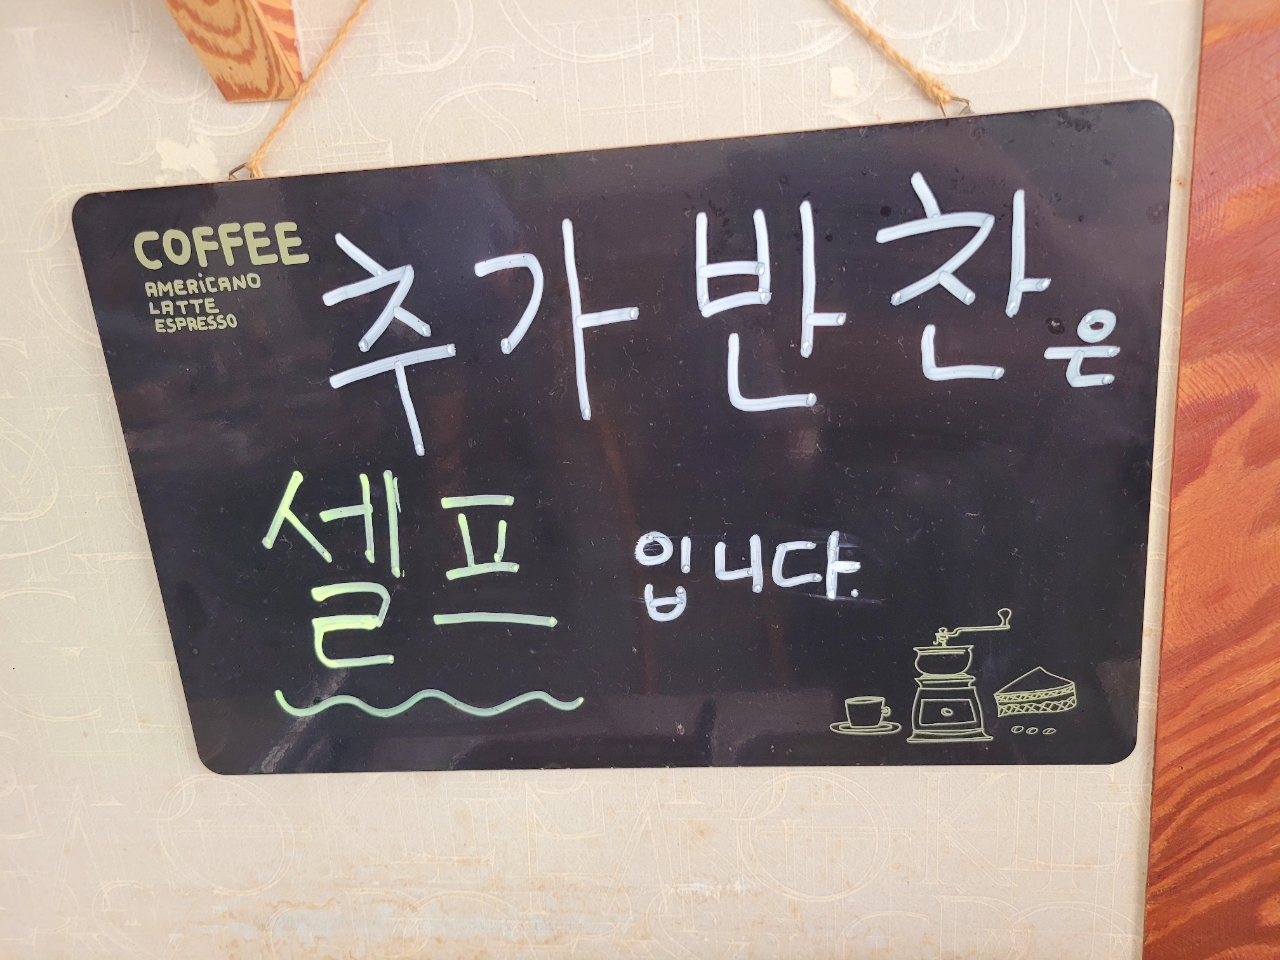 COFFEE
AMERiCANO
LATTE
ESPRESSO
추가 반찬은
셀프 입니다.